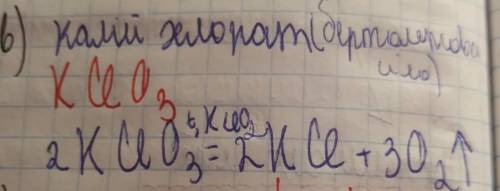 б) калій хлорат (бертолетова
сіль)
KClO₃
t,
2KClO₃ = 2KCl + 3O₂↑